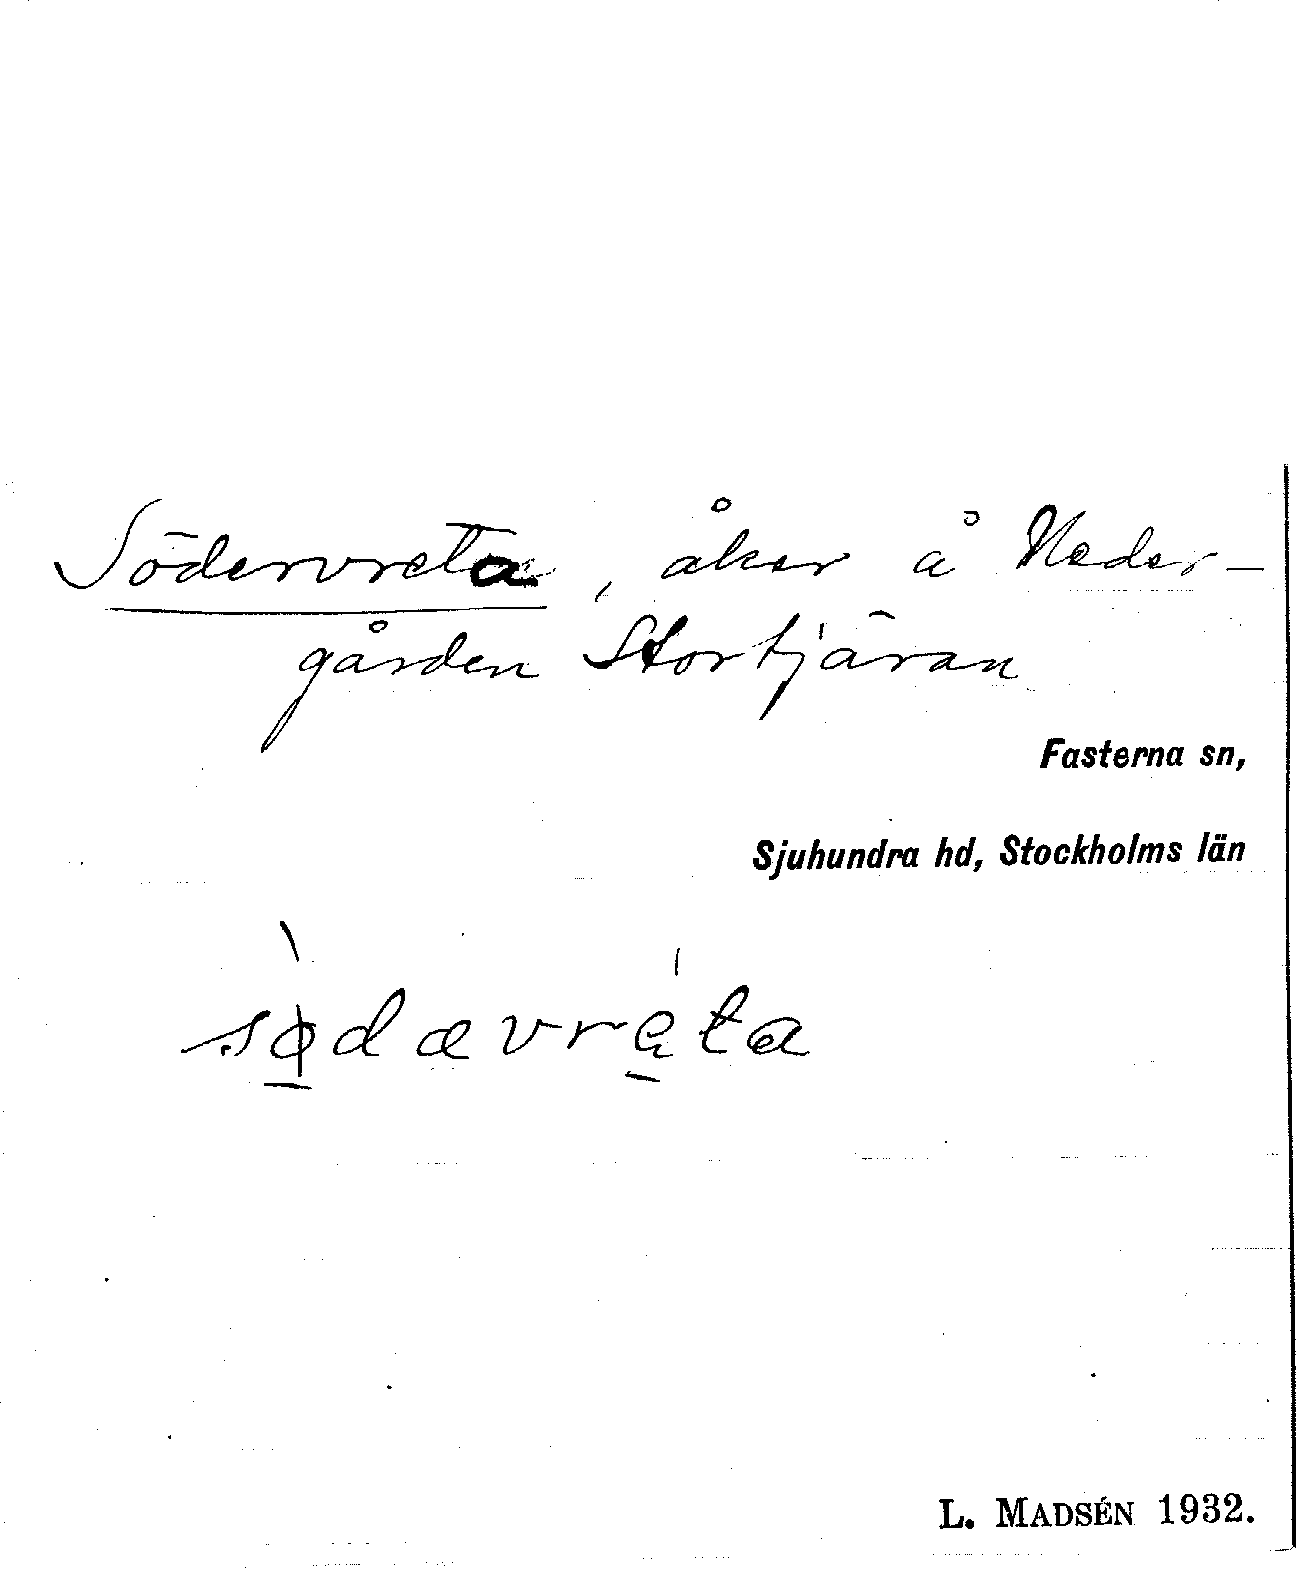 Södervreta, åker å Neder-
gården Stortjäran
Fasterna sn,
Sjuhundra hd, Stockholms län
sø̀dævréta
L. MADSÉN 1932.